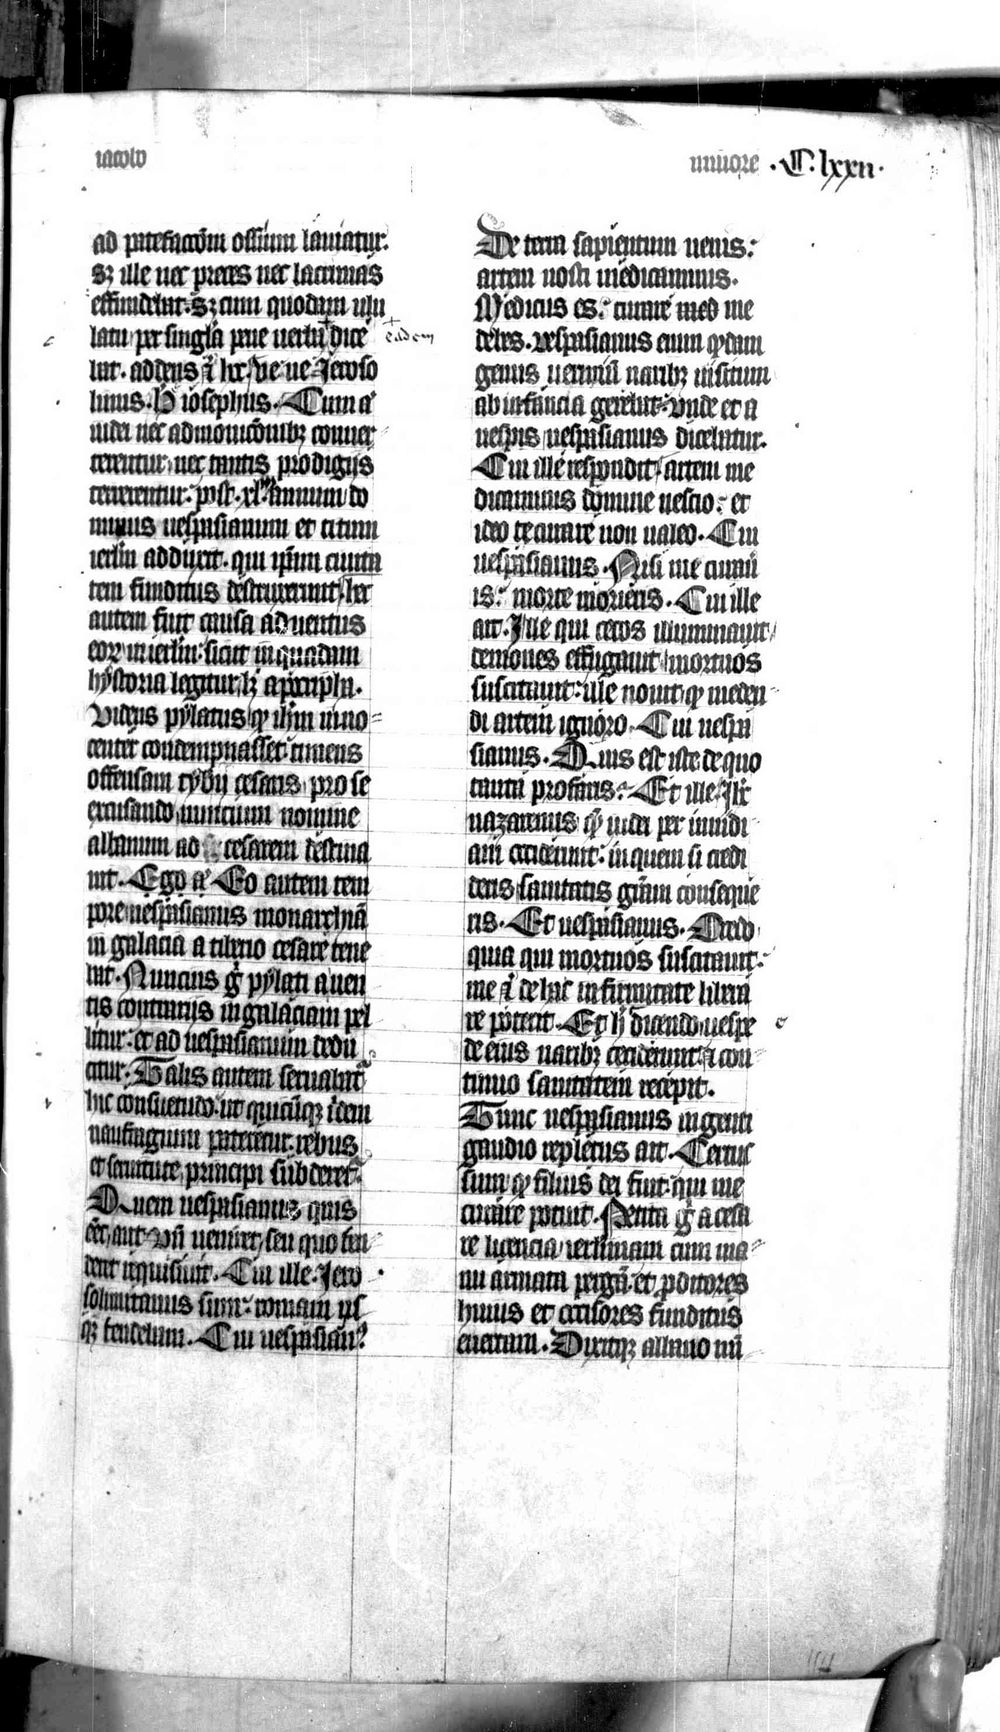 iacobo
minore · C · lxxii ·
ad patefactōm ossium laniatur.
sꝫ ille nec preces nec lacrimas
effundebat. sꝫ cum quodam ulu
latu per singla pene uerba dice
eadem
bat. addens ⁊ hec. ve ve Jeroso
limis. H iosephus. Cum aͨ
iudei nec admonicōnibꝫ conuer
terentur. nec tantis prodigijs
terrerentur. post xl. annum do
minus uespasianum et titum
ierlm adduxit. qui ipām ciuita
tem funditus destruxerunt. hec
autem fuit causa aduentus
eoꝝ in ierlm. sicut in quadam
hystoria legitur lꝫ apocripha.
Videns pylatus ꝙ ihm inno
center condempnasset. timens
offensam tyberij cesaris. pro se
excusando nuncium nomine
albanum ad cesarem destina
uit. Ego aͨ Eo autem tem
pore uespasianus monarchiā
in galacia a tiberio cesare tene
bat. Nuncius gͦ pylati a uen
tis contrarijs in galaciam pel
litur. et ad uespasianum dedu
citur. Talis autem seruabatr̄
hic consuetudo. ut quicūqꝫ ibidem
naufragium pateretur. rebus
et seruitute principi subderet̄.
Quem uespasianus quis
eēt, aut vn̄ ueniret, seu quo ten
deret requisiuit. Cui ille. Jero
solimitanus sum. romam us
qꝫ tendebam. Cui uespasianꝰ
De terra sapientum uenis.
artem nosti medicaminis.
Medicus es. curare me
debes. vespasianus enim qͥdam
genus uermiū naribꝫ insitum
ab infancia gerebat. vnde et a
uespis uespasianus dicebatur.
Cui ille respondit. artem me
dicaminis domine nescio. et
ideo te curare non ualeo. Cui
uespasianus. Nisi me curau
is. morte morieris. Cui ille
ait. Ille qui cecos illuminauit
demones effugauit. mortuos
suscitauit. ille nouit ꝙ meden
di artem ignoro. Cui uespa
sianus. Quis est iste de quo
tanta profaris. Et ille. Ihc
nazarenus ꝙ̄ iudei per inuidi
am occiderunt. in quem si credi
deris sanitatis grām conseque
ris. Et uespasianus. Credo
quia qui mortuos suscitauit.
me ⁊ de hac infirmitate libera
re poterit. Et h̄ dicendo uespe
de eius naribꝫ ceciderunt ⁊ con
tinuo sanitatem recepit.
Tunc uespasianus ingenti
gaudio repletus ait. Certus
sum ꝙ filius dei fuit. qui me
curare potuit. Petita gͦ a cesa
re licencia ierlimam cum ma
nu armata pergā. et ꝓditores
huius et occisores funditus
euertam. Dixitqꝫ albano nū